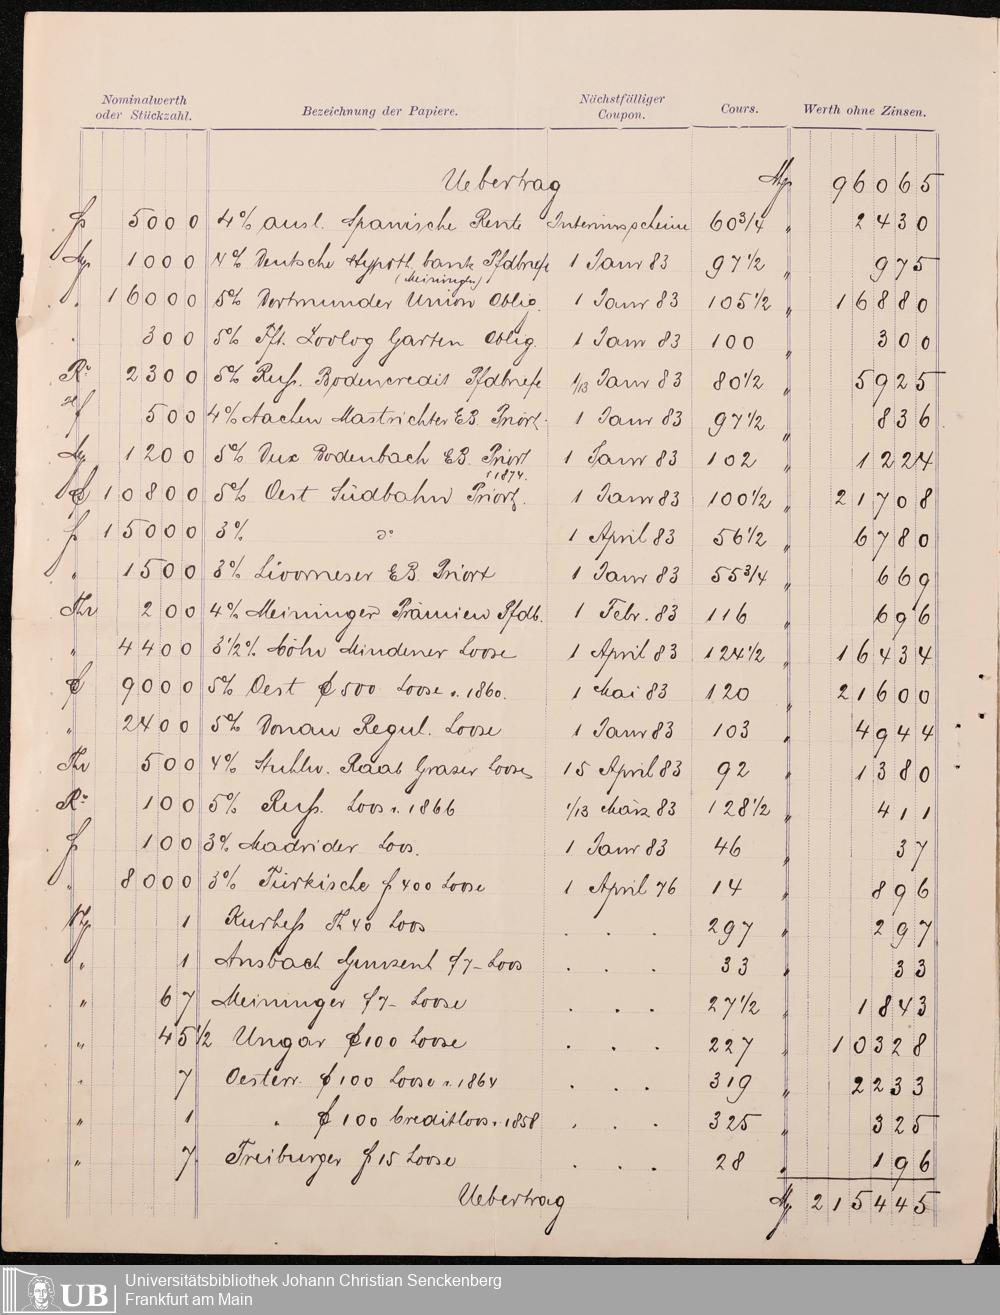 Nominalwerth oder Stückzahl. Bezeichnung der Papiere. Nächstfälliger Coupon. Cours. Werth ohne Zinsen.
Uebertrag 96065
5000 4% ausl. Spanische Rente Interimsscheine 60 3/4 " 2430
1000 4% Deutsche Hypoth. bank Pfdbriefe 1 Janr 83 97 1/2 " 975
(Meiningen)
" 16000 5% Dortmunder Union Oblig. 1 Janr 83 105 1/2 " 16880
" 300 5% Fft. Zoolog Garten Oblig. 1 Janr 83 100 " 300
Ro 2300 5% Russ. Bodencredit Pfdbriefe 1/13 Janr 83 80 1/2 " 5925
500 4% Aachen Mastrichter E.B. Priort. 1 Janr 83 97 1/2 " 836
1200 5% Dux Bodenbach E.B. Priort 1 Janr 83 102 " 1224
v 1874.
10800 5% Oest Südbahn Priort. 1 Janr 83 100 1/2 " 21708
15000 3% do 1 April 83 56 1/2 " 6780
" 1500 3% Livorneser E.B. Priort 1 Janr 83 55 3/4 " 669
Thr 200 4% Meininger Prämien Pfdb. 1 Febr. 83 116 " 696
" 4400 3 1/2% Cöln Mindener Loose 1 April 83 124 1/2 " 16434
9000 5% Oest 500 Loose v. 1860. 1 Mai 83 120 " 21600
" 2400 5% Donau Regul. Loose 1 Janr 83 103 " 4944
Thr 500 4% Stuhlw. Raab Grazer Loose 15 April 83 92 " 1380
Ro 100 5% Russ. Loos v. 1866 1/13 März 83 128 1/2 " 411
100 3% Madrider Loos. 1 Janr 83 46 " 37
" 8000 3% Türkische f 400 Loose 1 April 76 14 " 896
1 Kurhess Th 40 Loos . . . 297 " 297
" 1 Ansbach Gunzenh f 7- Loos . . . 33 " 33
" 67 Meininger f 7- Loose . . . 27 1/2 " 1843
" 45 1/2 Ungar 100 Loose . . . 227 " 10328
" 7 Oesterr. 100 Loose v. 1864 . . . 319 " 2233
" 1 " 100 Creditloos v. 1858 . . . 325 " 325
" 7 Freiburger f 15 Loose . . . 28 " 196
Uebertrag 215445
UB Universitätsbibliothek Johann Christian Senckenberg
Frankfurt am Main